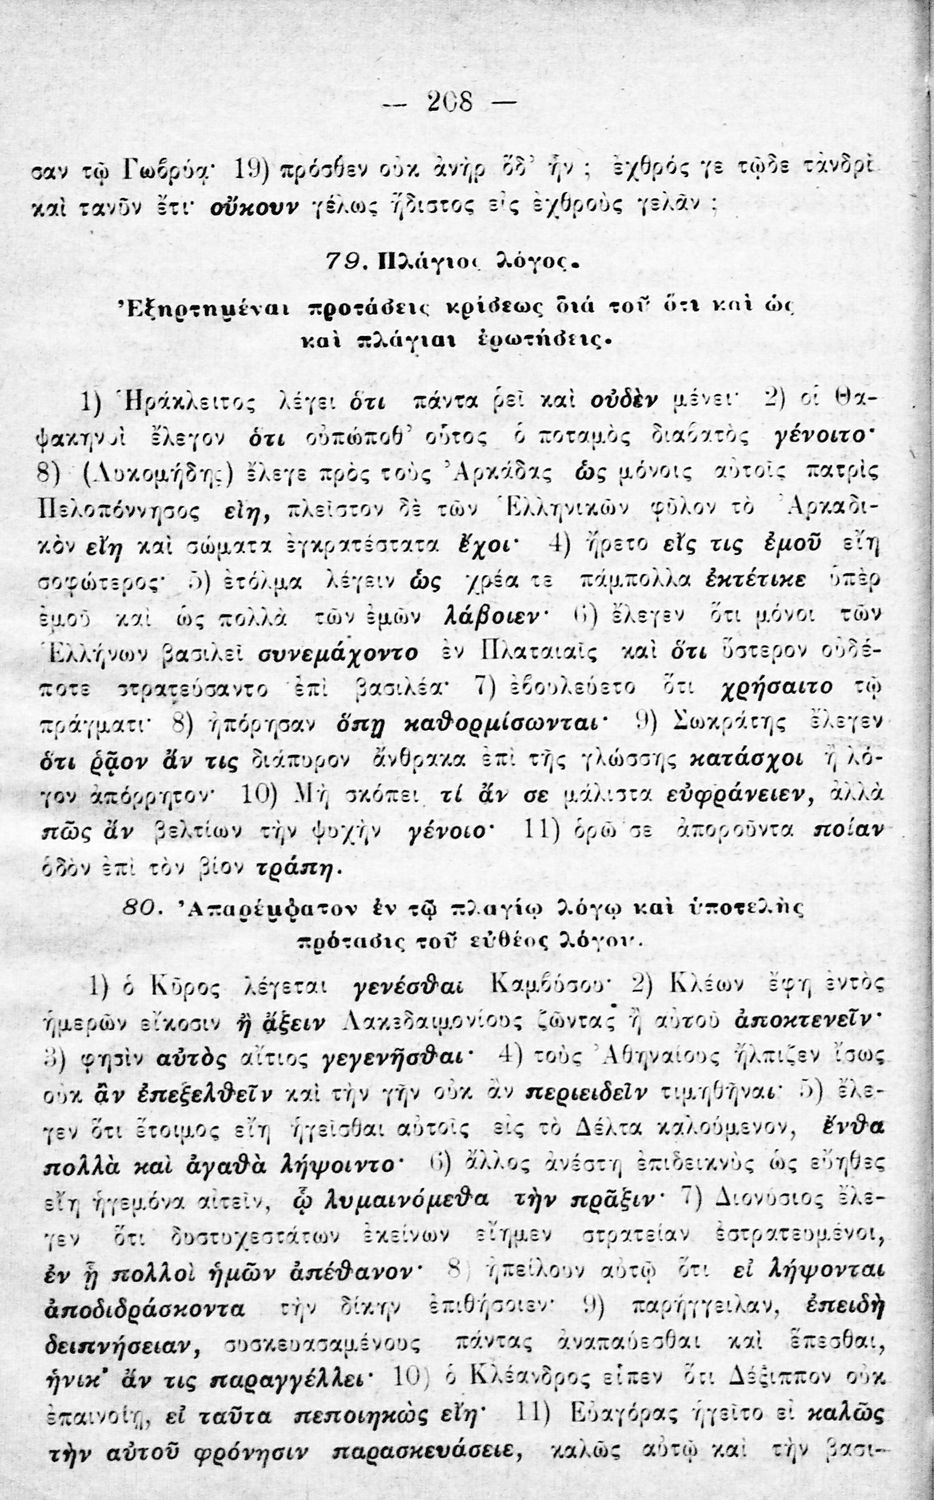 — 208 —
σαν τῷ Γωβρύᾳ· 19) πρόσθεν οὐκ ἀνὴρ ὅδ' ἦν ; ἐχθρός γε τῷδε τἀνδρὶ
καὶ τανῦν ἔτι· οὔκουν γέλως ἥδιστος εἰς ἐχθροὺς γελᾶν ;
79. Πλάγιος λόγος.
Ἐξηρτημέναι προτάσεις κρίσεως διά τοῦ ὅτι καὶ ὡς
καὶ πλάγιαι ἐρωτήσεις.
1) Ἡράκλειτος λέγει ὅτι πάντα ῥεῖ καὶ οὐδὲν μένει· 2) οἱ Θα-
ψακηνοὶ ἔλεγον ὅτι οὐπώποθ' οὗτος ὁ ποταμὸς διαβατὸς γένοιτο·
8) (Λυκομήδης) ἔλεγε πρὸς τοὺς Ἀρκάδας ὡς μόνοις αὐτοῖς πατρὶς
Πελοπόννησος εἴη, πλεῖστον δὲ τῶν Ἑλληνικῶν φῦλον τὸ Ἀρκαδι-
κὸν εἴη καὶ σώματα ἐγκρατέστατα ἔχοι· 4) ἤρετο εἴς τις ἐμοῦ εἴη
σοφώτερος· 5) ἐτόλμα λέγειν ὡς χρέα τε πάμπολλα ἐκτέτικε ὑπὲρ
ἐμοῦ καὶ ὡς πολλὰ τῶν ἐμῶν λάβοιεν· 6) ἔλεγεν ὅτι μόνοι τῶν
Ἑλλήνων βασιλεῖ συνεμάχοντο ἐν Πλαταιαῖς καὶ ὅτι ὕστερον οὐδέ-
ποτε στρατεύσαντο ἐπὶ βασιλέα· 7) ἐβουλεύετο ὅτι χρήσαιτο τῷ
πράγματι· 8) ἠπόρησαν ὅπῃ καθορμίσωνται· 9) Σωκράτης ἔλεγεν
ὅτι ῥᾷον ἄν τις διάπυρον ἄνθρακα ἐπὶ τῆς γλώσσης κατάσχοι ἢ λό-
γον ἀπόρρητον· 10) Μὴ σκόπει τί ἄν σε μάλιστα εὐφράνειεν, ἀλλὰ
πῶς ἄν βελτίων τὴν ψυχὴν γένοιο· 11) ὁρῶ σε ἀποροῦντα ποίαν
ὁδὸν ἐπὶ τὸν βίον τράπῃ.
80. Ἀπαρέμφατον ἐν τῷ πλαγίῳ λόγῳ καὶ ὑποτελὴς
πρότασις τοῦ εὐθέος λόγου.
1) ὁ Κῦρος λέγεται γενέσθαι Καμβύσου· 2) Κλέων ἔφη ἐντὸς
ἡμερῶν εἴκοσιν ἢ ἄξειν Λακεδαιμονίους ζῶντας ἢ αὐτοῦ ἀποκτενεῖν·
3) φησὶν αὐτὸς αἴτιος γεγενῆσθαι· 4) τοὺς Ἀθηναίους ἤλπιζεν ἴσως
οὐκ ἂν ἐπεξελθεῖν καὶ τὴν γῆν οὐκ ἂν περιειδεῖν τιμηθῆναι· 5) ἔλε-
γεν ὅτι ἕτοιμος εἴη ἡγεῖσθαι αὐτοῖς εἰς τὸ Δέλτα καλούμενον, ἔνθα
πολλὰ καὶ ἀγαθὰ λήψοιντο· 6) ἄλλος ἀνέστη ἐπιδεικνὺς ὡς εὔηθες
εἴη ἡγεμόνα αἰτεῖν, ᾧ λυμαινόμεθα τὴν πρᾶξιν· 7) Διονύσιος ἔλε-
γεν ὅτι δυστυχεστάτων ἐκείνων εἴημεν στρατείαν ἐστρατευμένοι,
ἐν ᾗ πολλοὶ ἡμῶν ἀπέθανον· 8) ἠπείλουν αὐτῷ ὅτι εἰ λήψονται
ἀποδιδράσκοντα τὴν δίκην ἐπιθήσοιεν· 9) παρήγγειλαν, ἐπειδὴ
δειπνήσειαν, συσκευασαμένους πάντας ἀναπαύεσθαι καὶ ἕπεσθαι,
ἡνίκ' ἄν τις παραγγέλλει· 10) ὁ Κλέανδρος εἶπεν ὅτι Δέξιππον οὐκ
ἐπαινοίη, εἰ ταῦτα πεποιηκὼς εἴη· 11) Εὐαγόρας ἡγεῖτο εἰ καλῶς
τὴν αὑτοῦ φρόνησιν παρασκευάσειε, καλῶς αὐτῷ καὶ τὴν βασι-